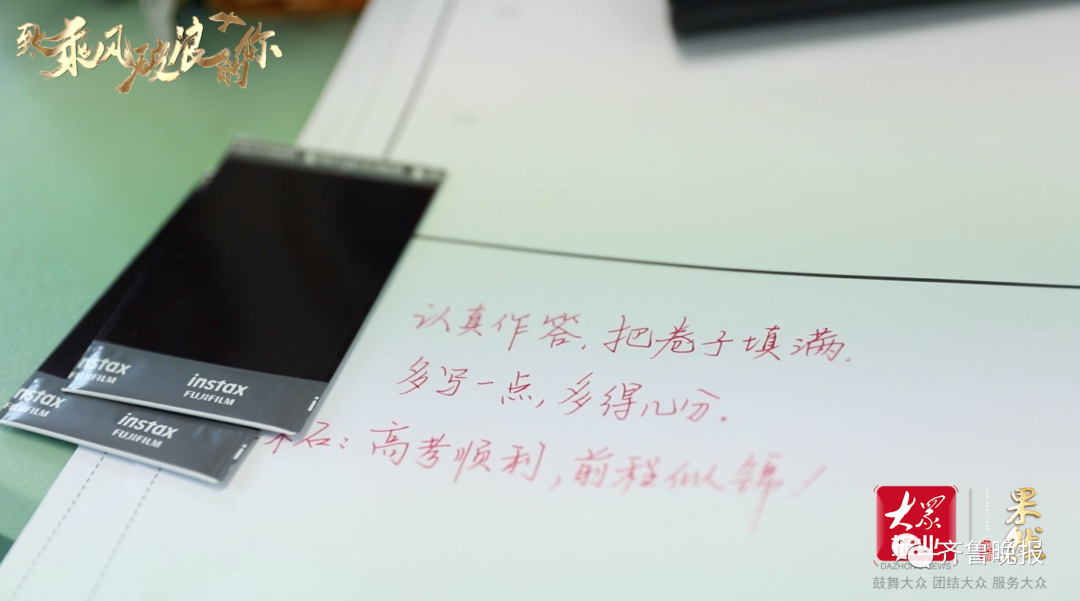 致乘风破浪的你
认真作答，把卷子填满.
多写一点，多得几分.
石：高考顺利，前程似锦！
instax
FUJIFILM
instax
FUJIFILM
instax
FUJIFILM
instax
FUJIFILM
大众
果然
齐鲁晚报
DAZHONG NEWS
鼓舞大众 团结大众 服务大众